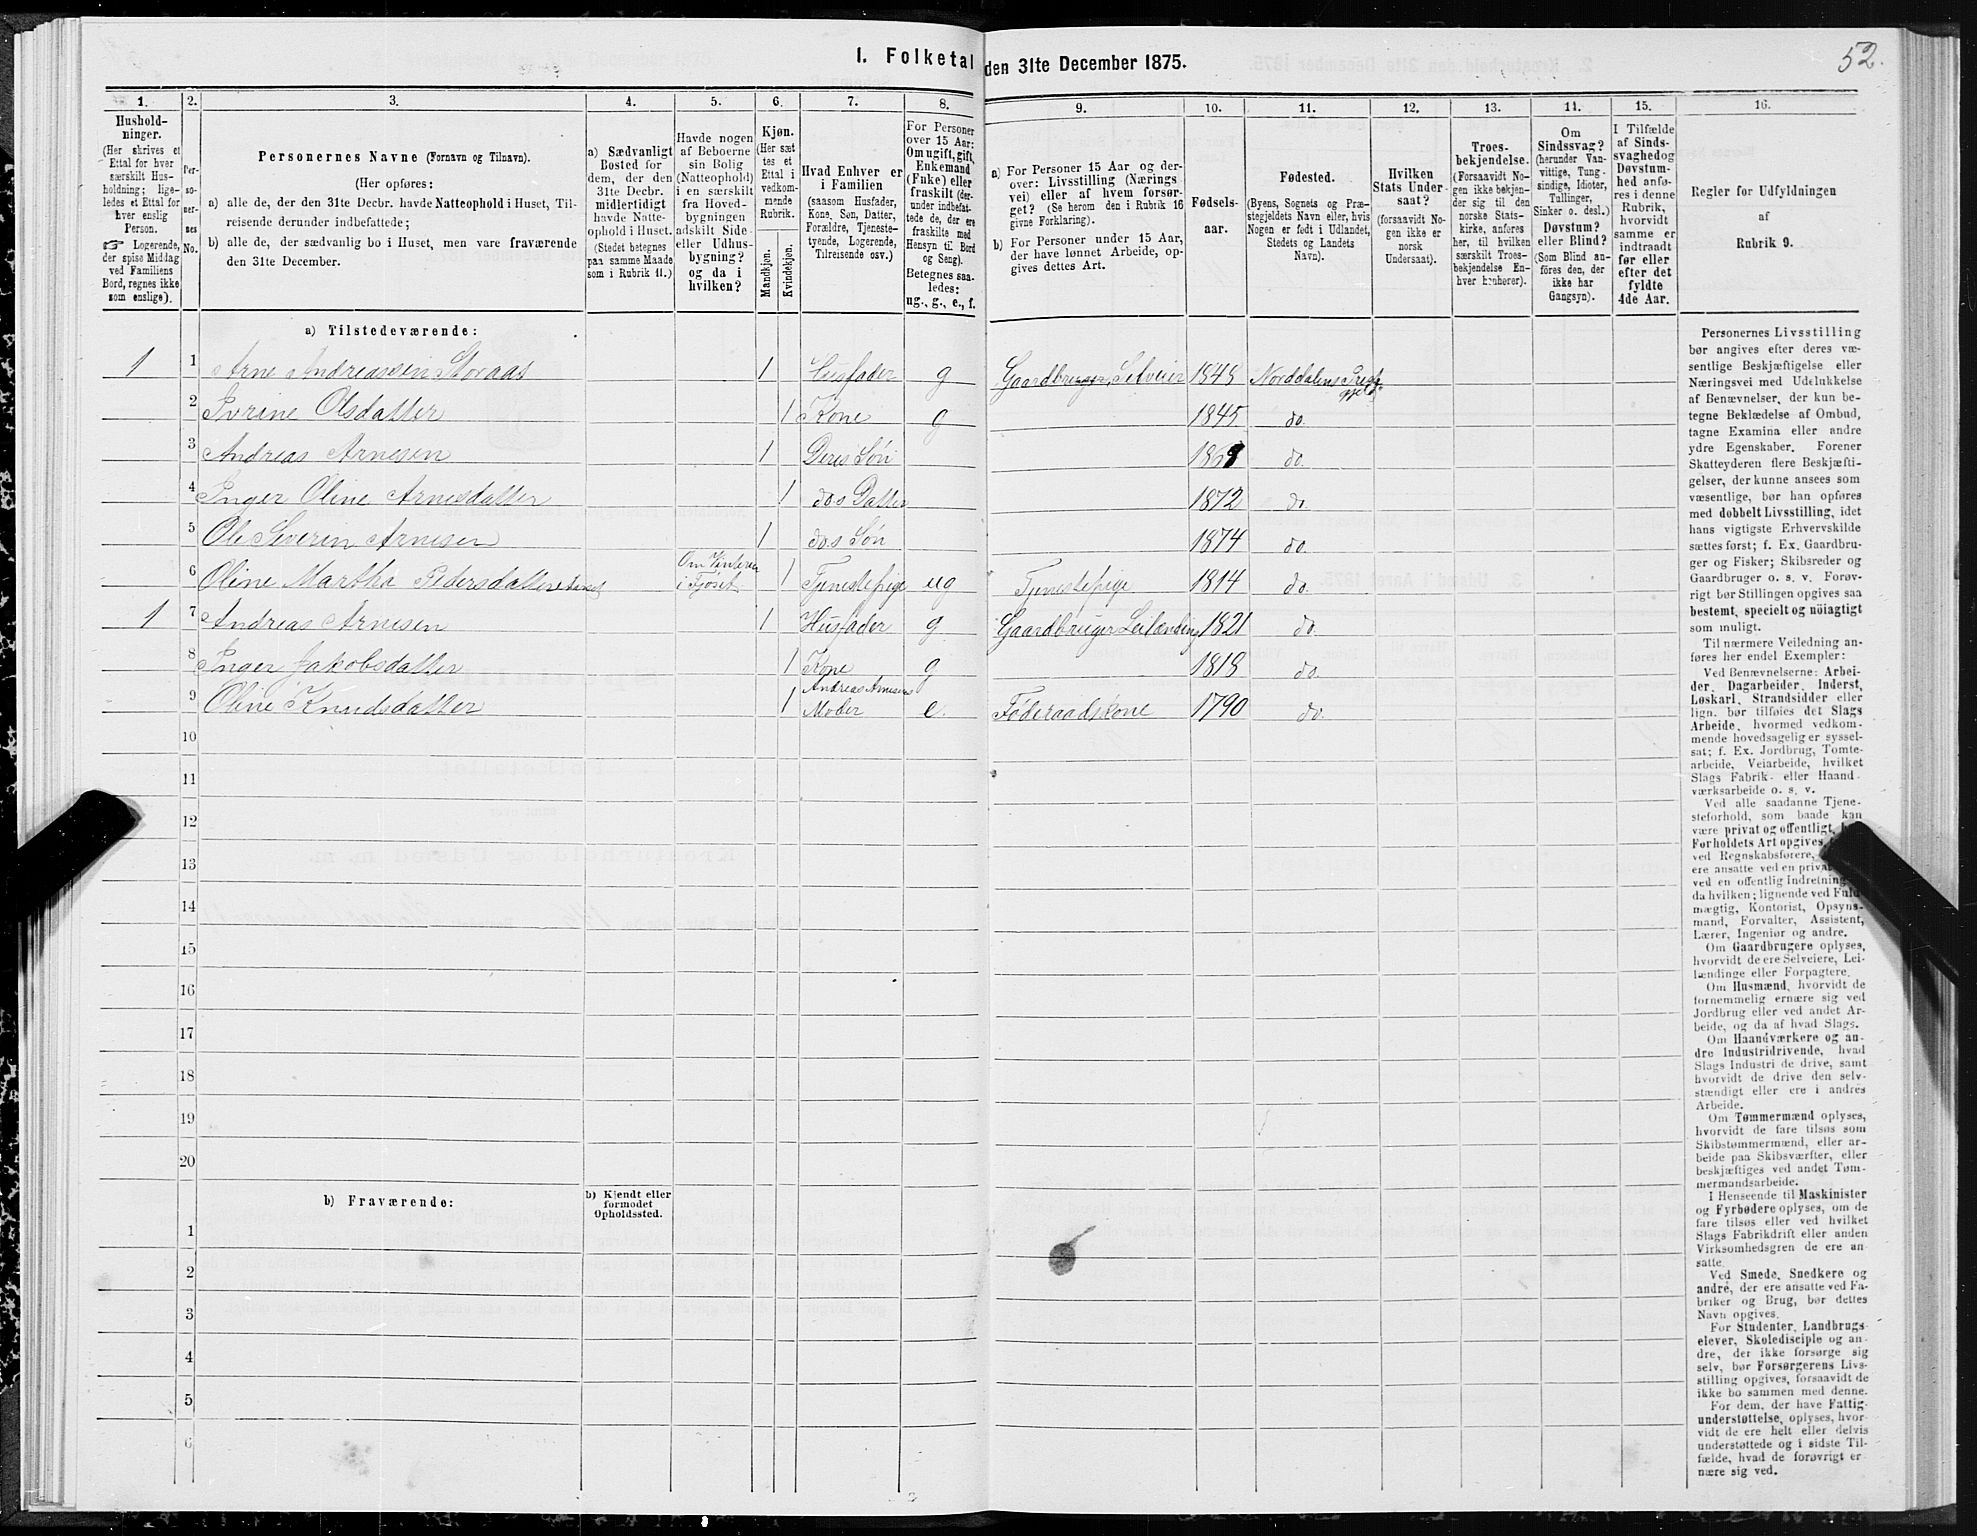 52.
1. Folketal den 31te December 1875.
1. 2. 3. 4. 5. 6. 7. 8. 9. 10. 11. 12. 13. 14. 15. 16.
Hushold-
ninger.
(Her skrives et
Ettal for hver
særskilt Hus-
holdning; lige-
ledes et Ettal for
hver enslig
Person.
☞ Logerende,
der spise Middag
ved Familiens
Bord, regnes ikke
som enslige).
Per-
so-
ner-
nes
No.
Personernes Navne (Fornavn og Tilnavn).
(Her opføres:
a) alle de, der den 31te Decbr. havde Natteophold i Huset, Til-
reisende derunder indbefattede;
b) alle de, der sædvanlig bo i Huset, men vare fraværende
den 31te December.
a) Sædvanligt
Bosted for
dem, der den
31te Decbr.
midlertidigt
havde Natte-
ophold i Huset.
(Stedet betegnes
paa samme Maade
som i Rubrik 11.)
Havde nogen
af Beboerne
sin Bolig
(Natteophold)
i en særskilt
fra Hoved-
bygningen
adskilt Side-
eller Udhus-
bygning?
og da i
hvilken?
Kjøn.
(Her sæt
tes et
Ettal i
vedkom-
mende
Rubrik.
Mandkjøn.
Kvindekjøn.
Hvad Enhver er
i Familien
(saasom Husfader,
Kone, Søn, Datter,
Forældre, Tjeneste-
tyende, Logerende,
Tilreisende osv.)
For Personer
over 15 Aar:
Om ugift, gift,
Enkemand
(Enke) eller
fraskilt (der-
under indbefat-
tede de, der ere
fraskilte med
Hensyn til Bord
og Seng).
Betegnes saa-
ledes:
ug., g., e., f.
a) For Personer 15 Aar og der-
over: Livsstilling (Nærings-
vei) eller af hvem forsør-
get? (Se herom den i Rubrik 16
givne Forklaring).
b) For Personer under 15 Aar,
der have lønnet Arbeide, op-
gives dettes Art.
Fødsels-
aar.
Fødested.
(Byens, Sognets og Præ-
stegjeldets Navn eller, hvis
Nogen er født i Udlandet,
Stedets og Landets
Navn).
Hvilken
Stats Under-
saat?
(forsaavidt No-
gen ikke er
norsk
Undersaat).
Troes-
bekjendelse.
(Forsaavidt No-
gen ikke bekjen-
der sig til den
norske Stats-
kirke, anføres
her, til hvilken
særskilt Troes-
bekjendelse En-
hver henhører).
Om
Sindssvag?
(herunder Van-
vittige, Tung-
sindige, Idioter,
Tullinger,
Sinker o. desl.)
Døvstum?
eller Blind?
(Som Blind an-
føres den, der
ikke har
Gangsyn).
I Tilfælde
af Sinds-
svaghed og
Døvstum-
hed anfø-
res i denne
Rubrik,
hvorvidt
samme er
indtraadt
før eller
efter det
fyldte
4de Aar.
Regler for Udfyldningen
af
Rubrik 9.
a) Tilstedeværende:
1 1 Arne Andreassen Storaas 1 Husfader g Gaardbruger, Selveier 1848 Norddalens Præstegjeld
2 Ivrine Olsdatter 1 Kone g 1845 do.
3 Andreas Arnesen 1 Deres Søn do.
4 Inger Oline Arnesdatter 1 do s Datter 1872 do
5 Ole Severin Arnesen 1 do s Søn 1874 do.
6 Oline Martha Pedersdatter Om Vinteren i Fjøset 1 Tjenestepige ug Tjenestepige 1814 do.
1 7 Andreas Arnesen 1 Husfader g Gaardbruger Leilænding 1821 do.
8 Inger Jakobsdatter 1 Kone g 1818 do.
9 Oline Knudsdatter 1 Andreas Arnesens Moder e. Føderaadskone 1790 do.
10
11
12
13
14
15
16
17
18
19
20
b) Fraværende:
b) Kjendt eller
formodet
Opholdssted.
1
2
3
4
5
6
Personernes Livsstilling
bør angives efter deres væ-
sentlige Beskjæftigelse eller
Næringsvei med Udelukkelse
af Benævnelser, der kun be-
tegne Beklædelse af Ombud,
tagne Examina eller andre
ydre Egenskaber. Forener
Skatteyderen flere Beskjæfti-
gelser, der kunne ansees som
væsentlige, bør han opføres
med dobbelt Livsstilling, idet
hans vigtigste Erhvervskilde
sættes først; f. Ex. Gaardbru-
ger og Fisker; Skibsreder og
Gaardbruger o. s. v. Forøv-
rigt bør Stillingen opgives saa
bestemt, specielt og nøiagtigt
som muligt.
Til nærmere Veiledning an-
føres her endel Exempler:
Ved Benævnelserne: Arbei-
der, Dagarbeider, Inderst,
Løskarl, Strandsidder eller
lign. bør tilføies det Slags
Arbeide, hvormed vedkom-
mende hovedsagelig er syssel-
sat; f. Ex. Jordbrug, Tomte-
arbeide, Veiarbeide, hvilket
Slags Fabrik- eller Haand-
værksarbeide o. s. v.
Ved alle saadanne Tjene-
steforhold, som baade kan
være privat og offentligt,
Forholdets Art opgives,
ved Regnskabsførere,
ere ansatte ved en
ved en offentlig Indretning
da hvilken; lignende ved Fuld-
mægtig, Kontorist, Opsyns-
mand, Forvalter, Assistent,
Lærer, Ingeniør og andre.
Om Gaardbrugere oplyses,
hvorvidt de ere Selveiere, Lei-
lændinge eller Forpagtere.
Om Husmænd, hvorvidt de
fornemmelig ernære sig ved
Jordbrug eller ved andet Ar-
beide, og da af hvad Slags.
Om Haandværkere og an-
dre Industridrivende, hvad
Slags Industri de drive, samt
hvorvidt de drive den selv-
stændigt eller ere i andres
Arbeide.
Om Tømmermænd oplyses,
hvorvidt de fare tilsøs som
Skibstømmermænd, eller ar-
beide paa Skibsværfter, eller
beskjæftiges ved andet Tøm-
mermandsarbeide.
I Henseende til Maskinister
og Fyrbødere oplyses, om de
fare tilsøs eller ved hvilket
Slags Fabrikdrift eller anden
Virksomhedsgren de ere an-
satte.
Ved Smede, Snedkere og
andre, der ere ansatte ved Fa-
briker og Brug, bør dettes
Navn opgives.
For Studenter, Landbrugs-
elever, Skoledisciple og an-
dre, der ikke forsørge sig
selv, bør Forsørgerens Livs-
stilling opgives, forsaavidt de
ikke bo sammen med denne.
For dem, der have Fattig-
understøttelse, oplyses, hvor-
vidt de ere helt eller delvis
understøttede og i sidste Til-
fælde, hvad de forøvrigt er-
nære sig ved.